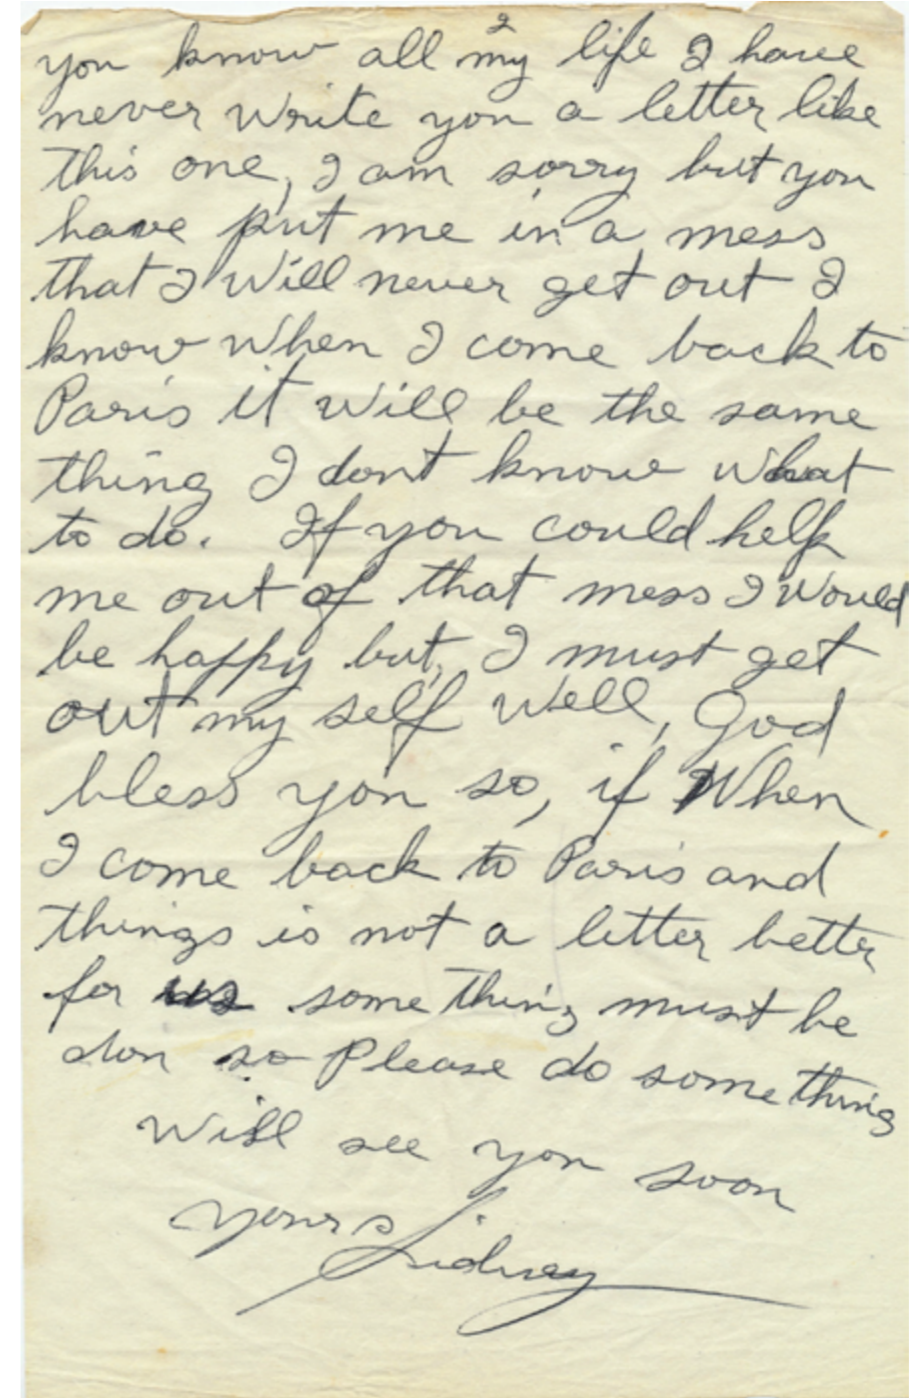 2
you know all my life I have
never write you a letter like
this one, I am sorry but you
have put me in a mess
that I will never get out I
know when I come back to
Paris it will be the same
thing I dont know what
to do. If you could help
me out of that mess I would
be happy but, I must get
out my self well, God
bless you so, if When
I come back to Paris and
things is not a litter better
for us some thing must be
don so Please do some thing
will see you soon
yours Sidney